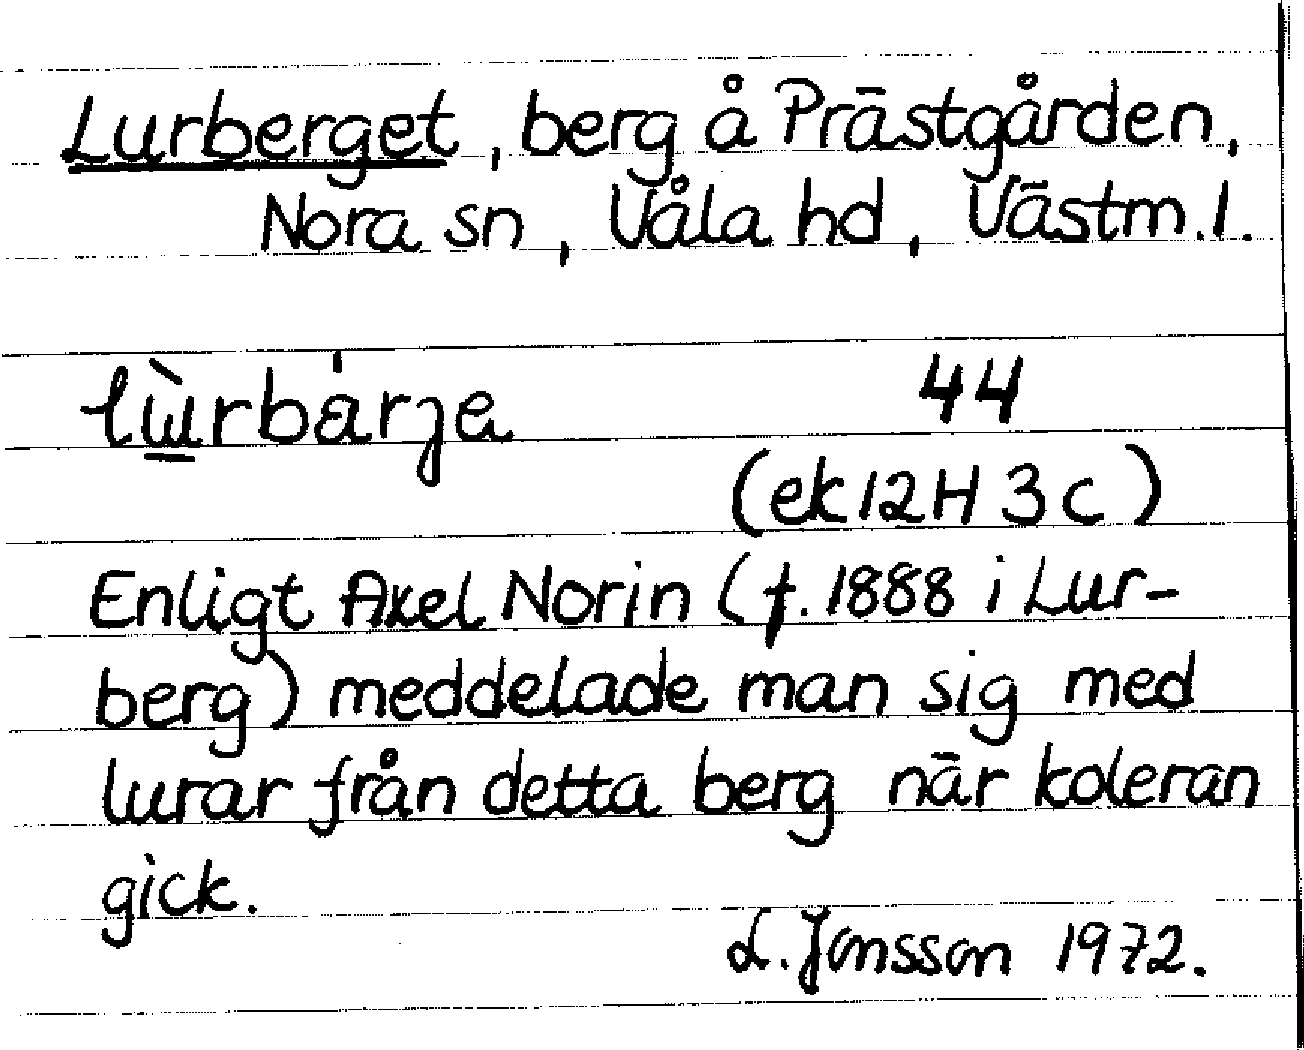 Lurberget, berg å Prästgården,
Nora sn, Våla hd, Västm.l.
44
(ek 12H 3c)
Enligt Axel Norin (f. 1888 i Lur-
berg) meddelade man sig med
lurar från detta berg när koleran
gick.
L. Jonsson 1972.